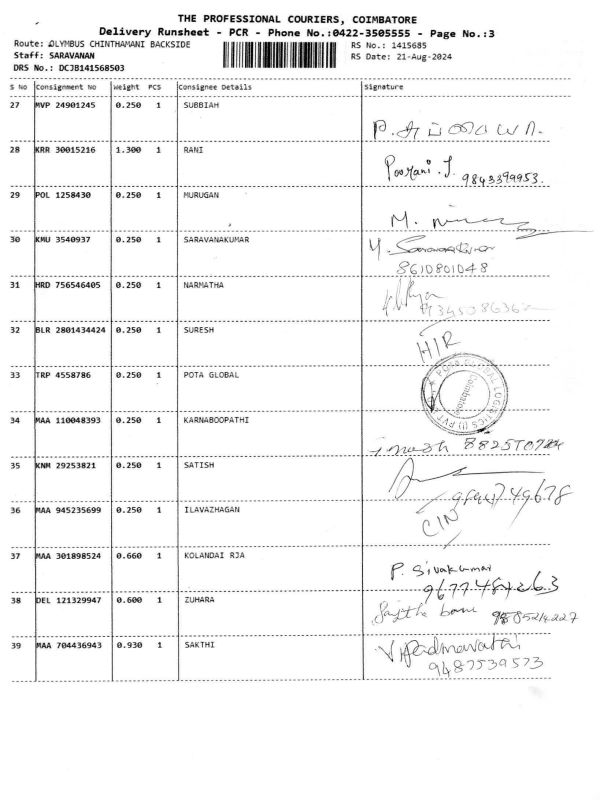 THE PROFESSIONAL COURIERS, COIMBATORE
Delivery Runsheet - PCR - Phone No.:0422-3505555 - Page No.:3
Route: OLYMBUS CHINTHAMANI BACKSIDE
RS No.: 1415685
Staff: SARAVANAN
RS Date: 21-Aug-2024
DRS No.: DCJB141568503
S No Consignment No Weight PCS Consignee Details Signature
27 MVP 24901245 0.250 1 SUBBIAH
28 KRR 30015216 1.300 1 RANI
Poorani. J. 9843399953.
29 POL 1258430 0.250 1 MURUGAN
M.
30 KMU 3540937 0.250 1 SARAVANAKUMAR
8610801048
31 HRD 756546405 0.250 1 NARMATHA
32 BLR 2801434424 0.250 1 SURESH
HIR
33 TRP 4558786 0.250 1 POTA GLOBAL
POTA GLOBAL LOGISTICS (I) PVT
Coimbatore
34 MAA 110048393 0.250 1 KARNABOOPATHI
35 KNM 29253821 0.250 1 SATISH
36 MAA 945235699 0.250 1 ILAVAZHAGAN
CIN
37 MAA 301898524 0.660 1 KOLANDAI RJA
P. Sivakumar
38 DEL 121329947 0.600 1 ZUHARA
39 MAA 704436943 0.930 1 SAKTHI
V Padmavathi
9487539573